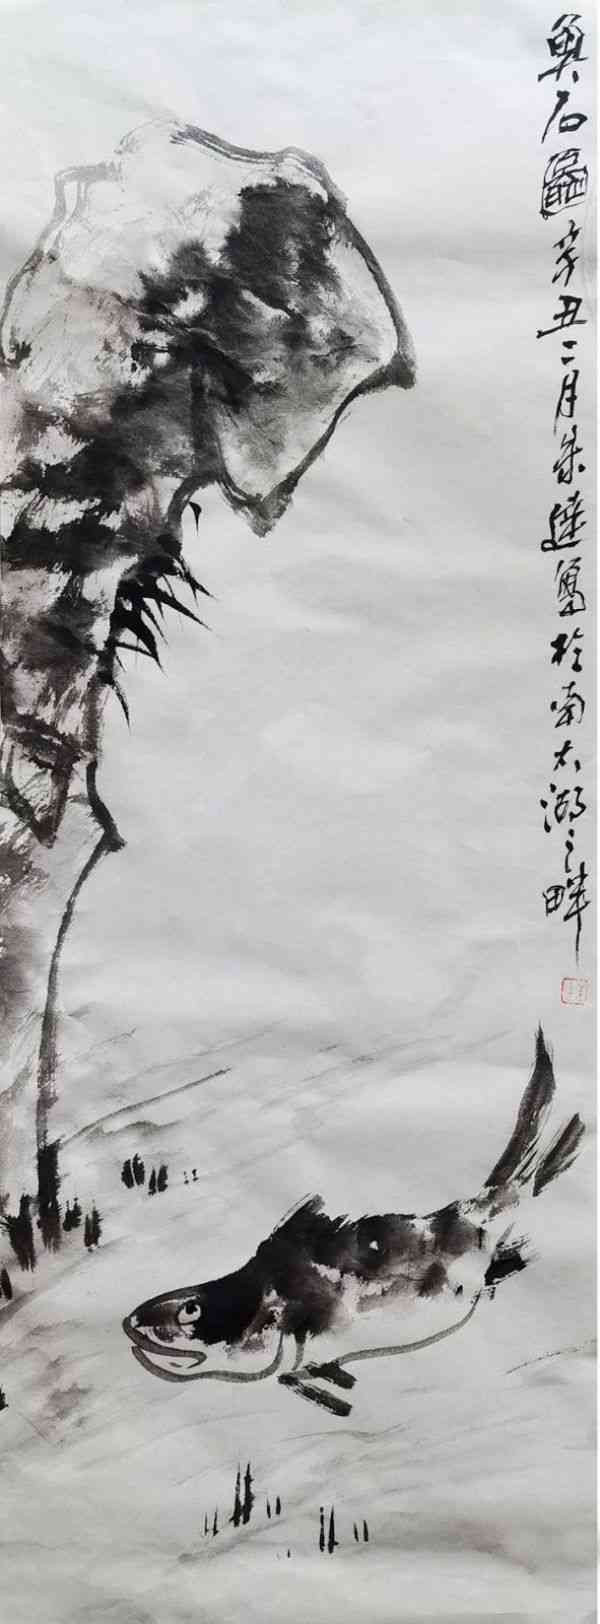 魚石圖辛丑二月朱達寫於南太湖之畔